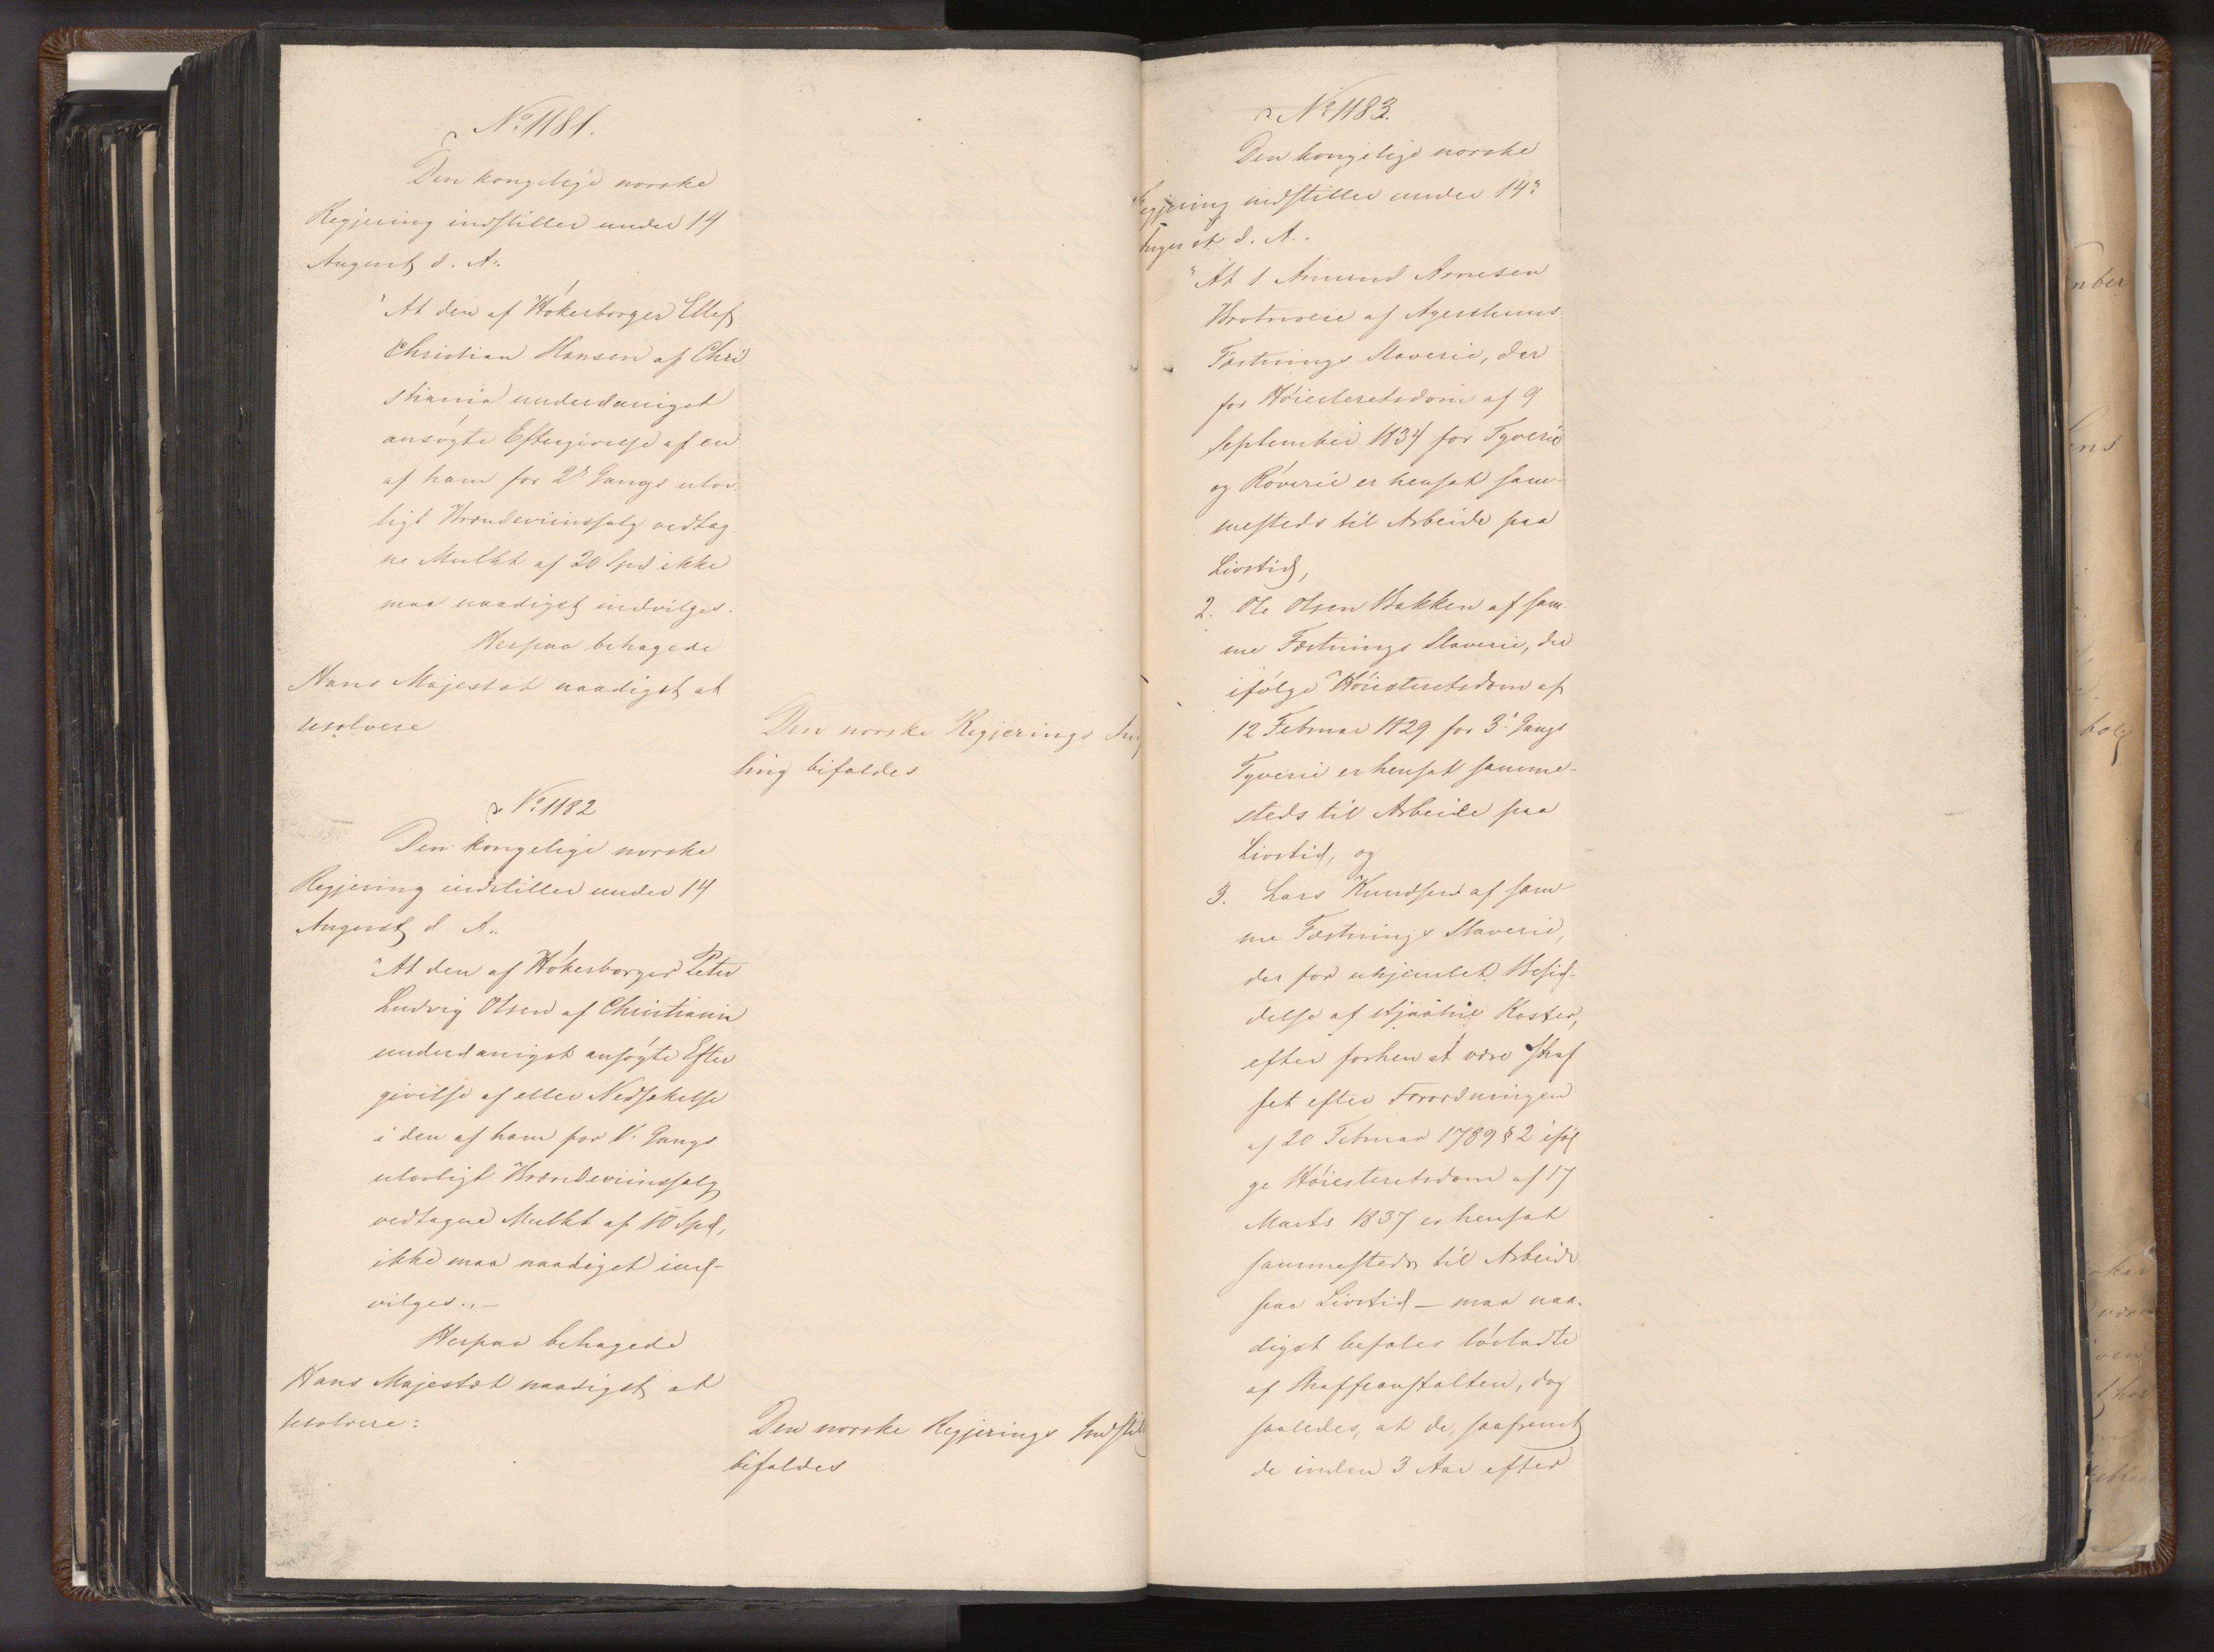 No 1181.
Den kongelige norske
Regjering indstiller under 14
August d. A.
"At den af Høkerborger Ellef
Christian Hansen af Chri
stiania underdanigst
ansøgte Eftergivelse af en
af ham for 2den Gangs ulov-
ligt Brændeviinssalg vedtag-
ne Mulkt af 20 Spd ikke
maa naadigst indvilges.
Herpaa behagede
Hans Majestæt naadigst at
resolvere
Den norske Regjerings
ling bifaldes
No 1182
Den kongelige norske
Regjering indstiller under 14
August d. A.
"At den af Høkerborger Peter
Ludvig Olsen af Christiania
underdanigst ansøgte Efter
givelse af eller Nedsættelse
i den af ham for 1. Gangs
ulovligt Brændeviinssalg
vedtagne Mulkt af 10 Spd,
ikke maa naadigst ind-
vilges."
Herpaa behagede
Hans Majestæt naadigst at
resolvere:
Den norske Regjerings Indstil
bifaldes
No 1183.
Den kongelige norske
Regjering indstiller under 14de
August d. A.
"At 1 Amund Arnesen
af Agershuus
Fæstnings Slaverie, der
for Høiesteretsdom af 9
September 1834 for Tyverie
og Røverie er hensat sam-
mesteds til Arbeide paa
Livstid,
2. Ole Olsen Bakken af sam-
me Fæstnings Slaverie, der
ifølge Høiesteretsdom af
12 Februar 1829 for 3die Gangs
Tyverie er hensat samme-
steds til Arbeide paa
Livstid, og
3. Lars Knudsen af sam-
me Fæstnings Slaverie,
der for uhjemlet Besid-
delse af stjaalne Koster,
efter forhen at være straf
fet efter Forordningen
af 20 Februar 1789 § 2 iføl
ge Høiesteretsdom af 17
Marts 1837 er hensat
sammesteds til Arbeide
paa Livstid - maa naa-
digst befales løsladte
af Straffeanstalten, dog
saaledes, at de, saafremt
de inden 3 Aar efter